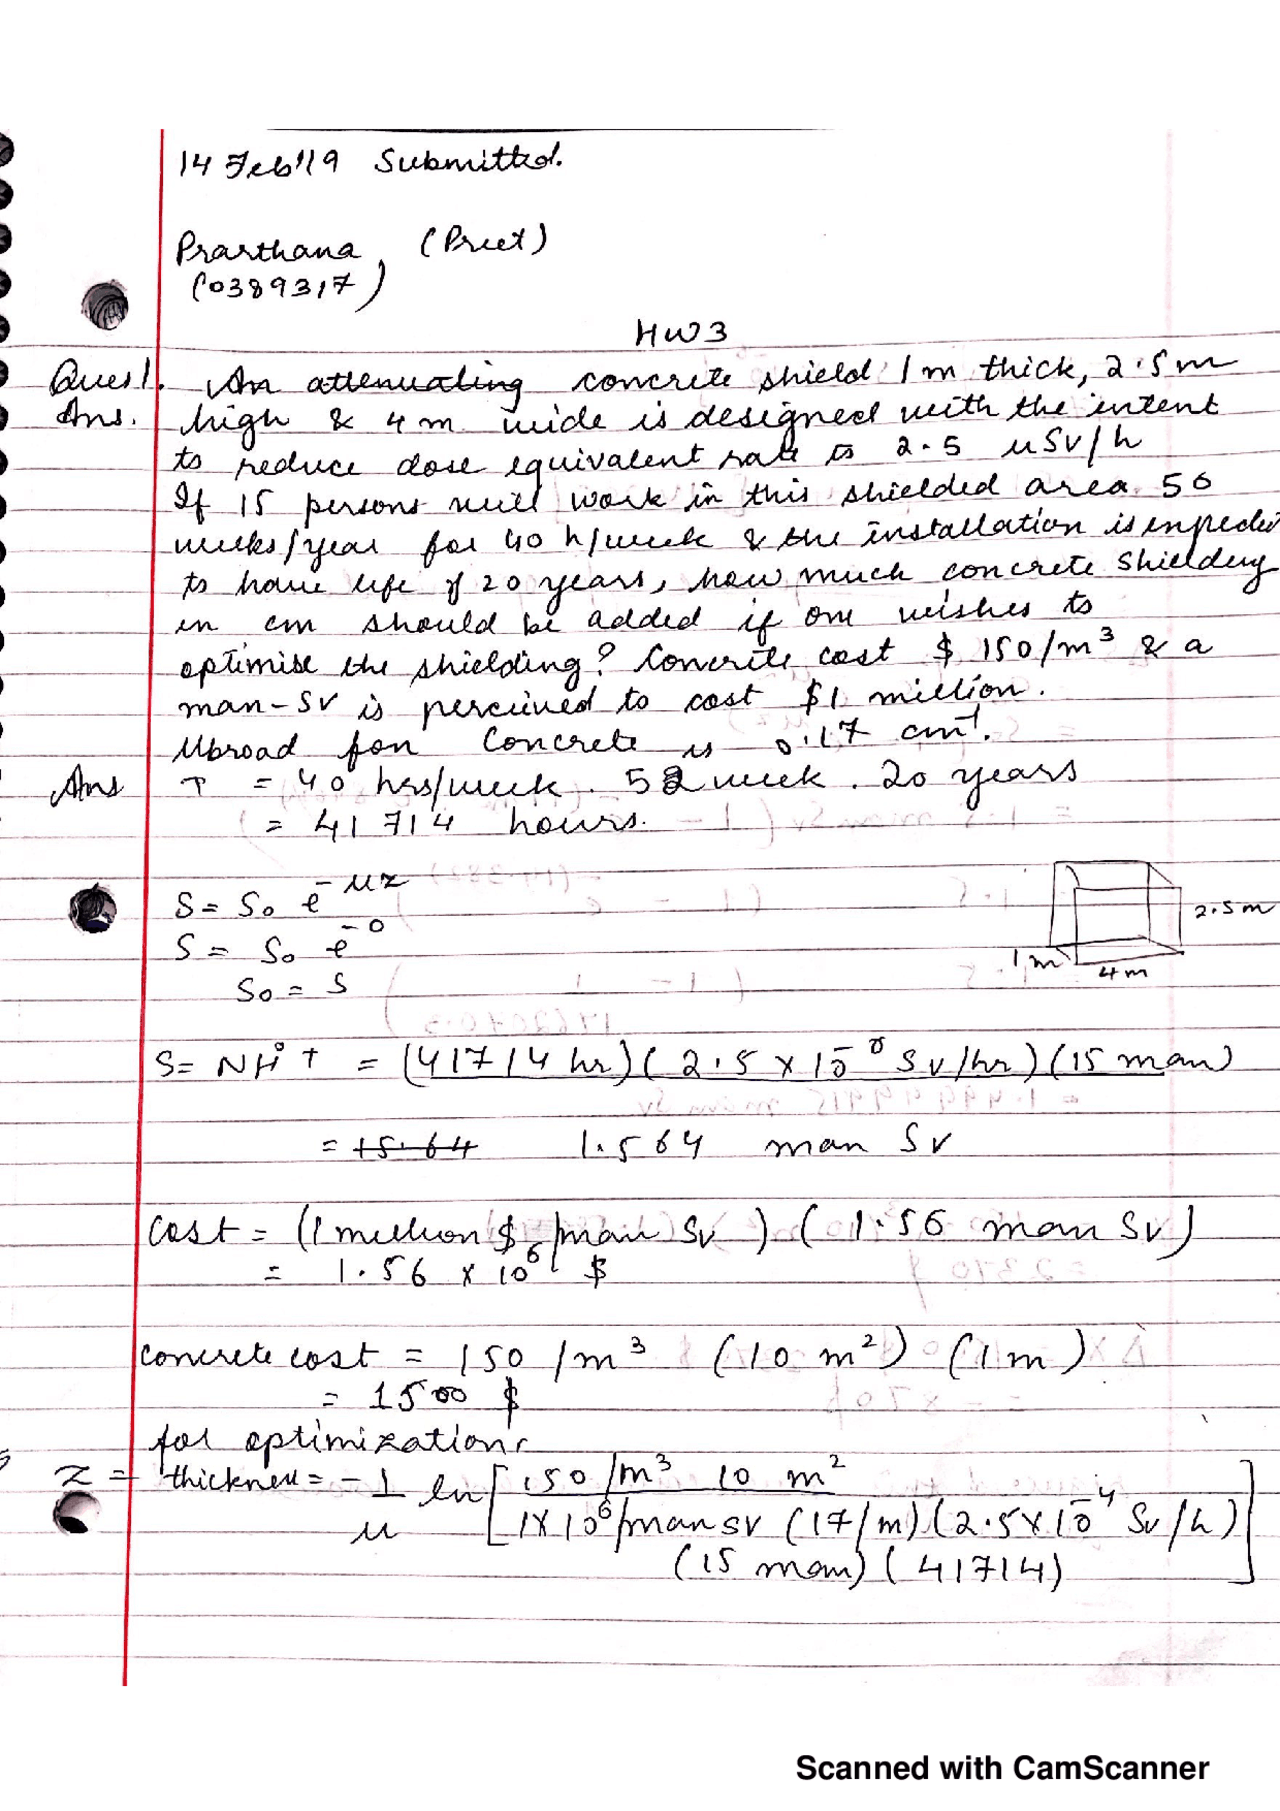 14 Feb'19 Submitted.
Prarthana (Preet)
(0389317)
HW3
Ques1. An attenuating concrete shield 1m thick, 2.5m
Ans. high & 4m wide is designed with the intent
to reduce dose equivalent rate to 2.5 μSv/h
If 15 persons will work in this shielded area 50
weeks/year for 40 h/week & the installation is expected
to have life of 20 years, how much concrete shielding
in cm should be added if one wishes to
optimise the shielding? Concrete cost $ 150/m³ & a
man-SV is perceived to cost $1 million.
μbroad for Concrete is 0.17 cm⁻¹.
Ans T = 40 hrs/week . 52 week . 20 years
= 41714 hours.
S = S₀ e^-μz
S = S₀ e^-0
S₀ = S
2.5m
1m
4m
S = NḢT = (41714 hr)(2.5 × 10⁻⁶ Sv/hr)(15 man)
= 15.64 1.564 man Sv
Cost = (1 million $/man Sv) (1.56 man Sv)
= 1.56 × 10⁶ $
Concrete cost = 150 /m³ (10 m²) (1m)
= 1500 $
for optimization
z = thickness = -1/μ ln [150/m³ 10 m²
1×10⁶/man sv (17/m)(2.5×10⁻⁴ Sv/h)
(15 man)(41714)]
Scanned with CamScanner